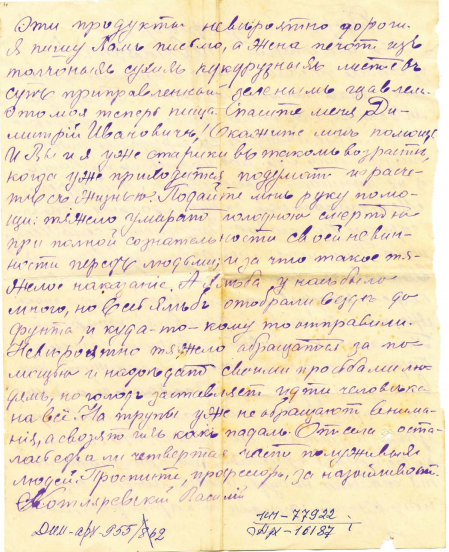 Эти продукты невироятно дороги.
Я пишу Вамъ письмо, а жена печотъ изъ
толчоныхъ сухихъ кукурузныхъ листьевъ
супъ приправленный зеленымъ щавлем.
это моя теперь пища. Спасите меня, Ди-
митрій Ивановичъ! Окажите мнъ помощь
И Вы и я уже старики въ такомъ возрасти,
когда уже приходится подумать о расче-
тъ съ жизнью. Подайте мнъ руку помо-
щи: тяжело умирать голодною смертью
при полной сознательности своей невин-
ности передъ людьми; и за что такое тя-
желое наказаніе. А хлъба у насъ было
много, но весь хлъбъ отобрали весь до
фунта и куда-то кому то отправили.
Невироятно тяжело обращатся за по-
мощью и надоъдать своими прозьбами лю-
дямъ, но голодъ заставляетъ идти человъка
на всё. На трупы уже не обращаютъ внима-
нія, а свозятъ ихъ какъ падаль. Отъ села оста-
лась едва ли четвертая часть полуживыхъ
людей. Простите, профессоръ, за назойливость.
Котляревскій Василій
Дин-арх-955/2
КП-77922
Арх-10187